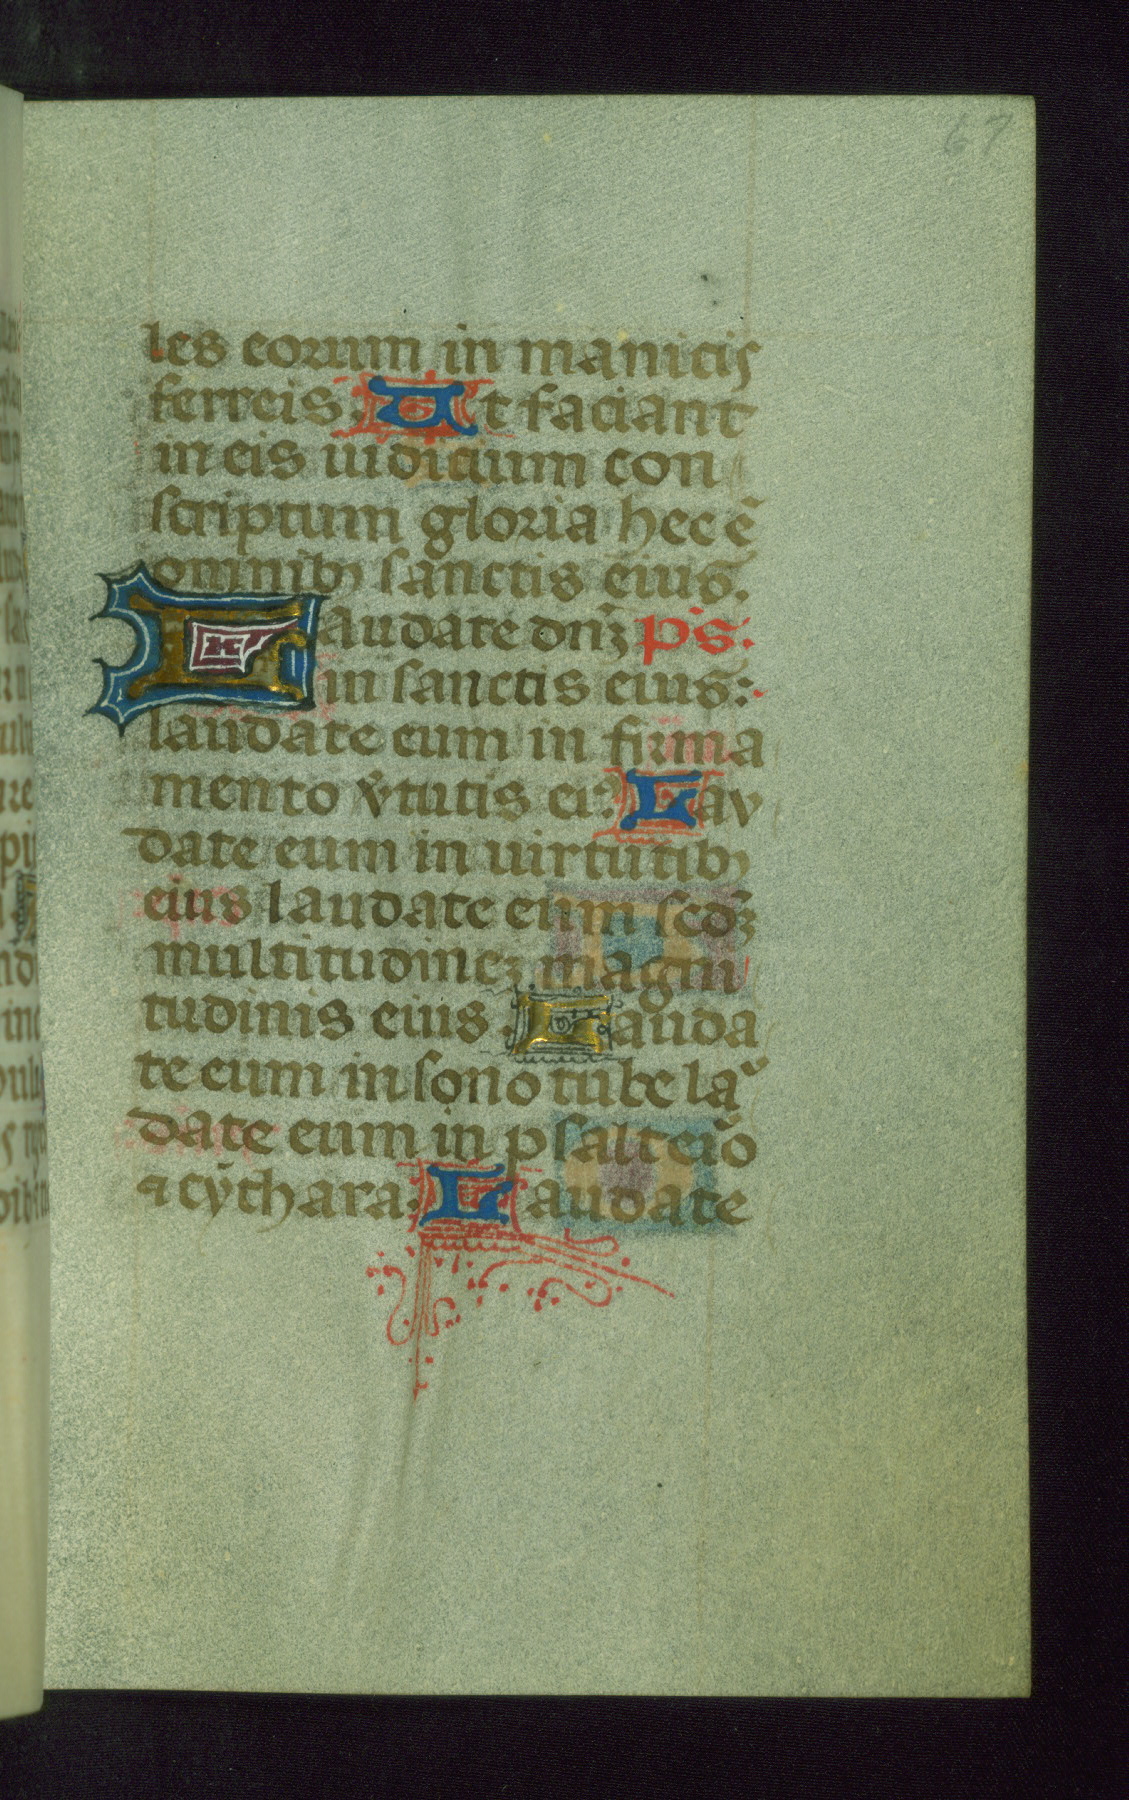 67
les eorum in manicis
ferreis. Ut faciant
in eis iudicium con
scriptum gloria hec ē
omnibꝫ sanctis eius.
Laudate dnꝫ ps.
in sanctis eius:
laudate eum in firma
mento v̾tutis ei⁹ Lau
date eum in uirtutibꝫ
eius laudate eum scdꝫ
multitudineꝫ magni
tudinis eius. Lauda
te eum in sono tube laᵘ
date eum in psalteīo
⁊ cythara. Laudate